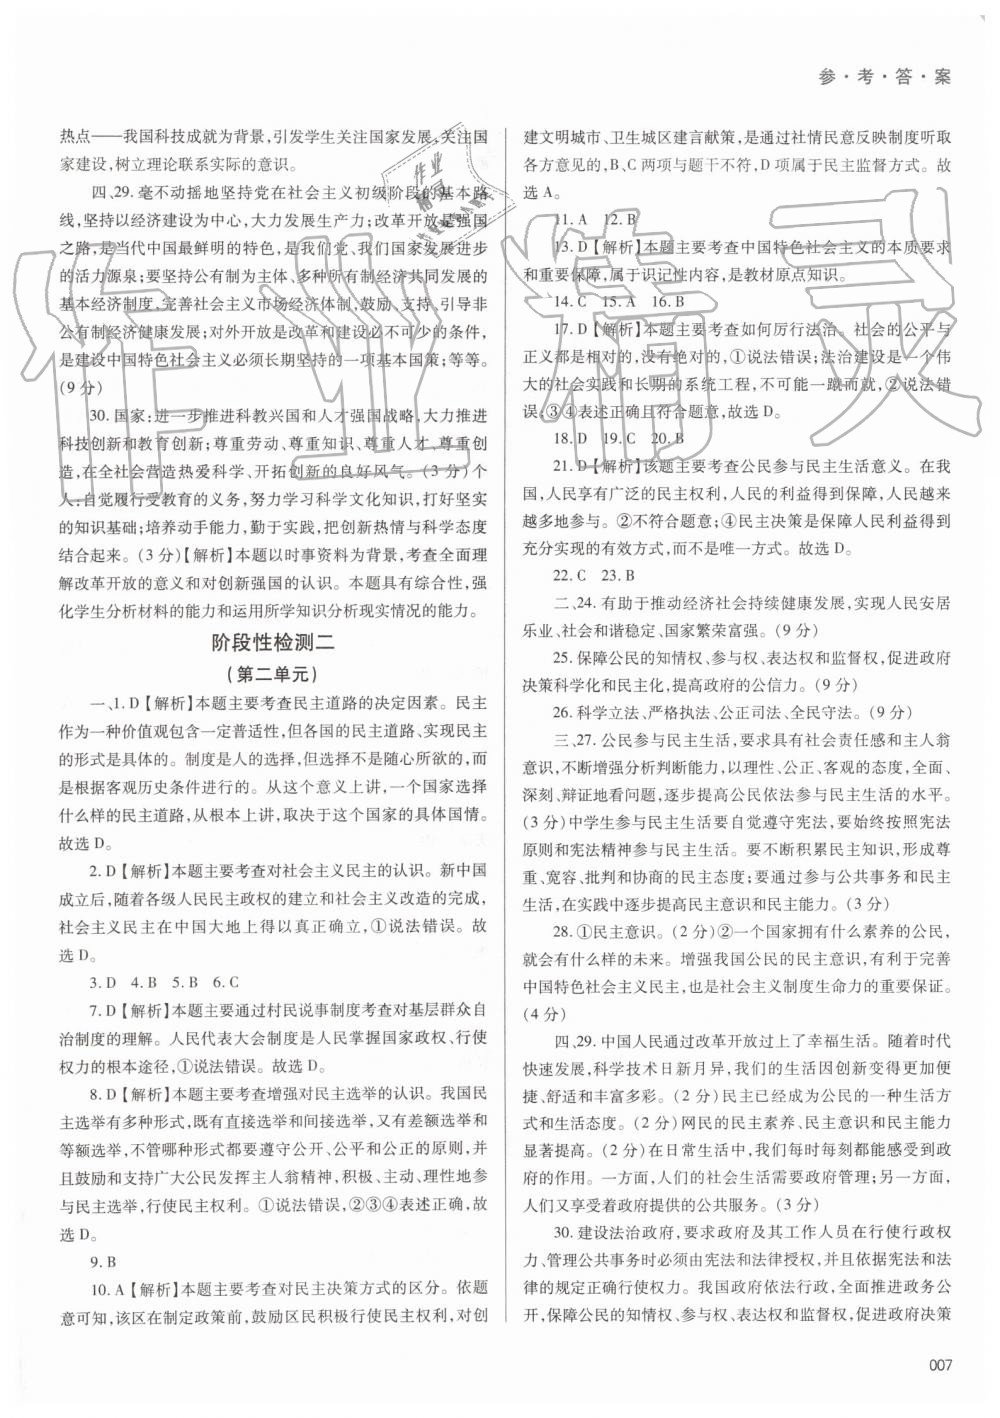 参·考·答·案
热点——我国科技成就为背景,引发学生关注国家发展、关注国
家建设,树立理论联系实际的意识。
四、29. 毫不动摇地坚持党在社会主义初级阶段的基本路
线,坚持以经济建设为中心,大力发展生产力;改革开放是强国
之路,是当代中国最鲜明的特色,是我们党、我们国家发展进步
的活力源泉;要坚持公有制为主体、多种所有制经济共同发展的
基本经济制度,完善社会主义市场经济体制,鼓励、支持、引导非
公有制经济健康发展;对外开放是改革和建设必不可少的条件,
是建设中国特色社会主义必须长期坚持的一项基本国策;等等。
(9 分)
30. 国家:进一步推进科教兴国和人才强国战略,大力推进
科技创新和教育创新;尊重劳动、尊重知识、尊重人才、尊重创
造,在全社会营造热爱科学、开拓创新的良好风气。(3 分)个
人:自觉履行受教育的义务,努力学习科学文化知识,打好坚实
的知识基础;培养动手能力,勤于实践,把创新热情与科学态度
结合起来。(3 分)【解析】本题以时事资料为背景,考查全面理
解改革开放的意义和对创新强国的认识。本题具有综合性,强
化学生分析材料的能力和运用所学知识分析现实情况的能力。
阶段性检测二
(第二单元)
一、1. D【解析】本题主要考查民主道路的决定因素。民主
作为一种价值观包含一定普适性,但各国的民主道路、实现民主
的形式是具体的。制度是人的选择,但不是随心所欲的,而
是根据客观历史条件进行的。从这个意义上讲,一个国家选择
什么样的民主道路,从根本上讲,取决于这个国家的具体国情。
故选 D。
2. D【解析】本题主要考查对社会主义民主的认识。新中国
成立后,随着各级人民民主政权的建立和社会主义改造的完成,
社会主义民主在中国大地上得以真正确立。①说法错误。故
选 D。
3. D 4. B 5. B 6. C
7. D【解析】本题主要通过村民说事制度考查对基层群众自
治制度的理解。人民代表大会制度是人民掌握国家政权、行使
权力的根本途径,①说法错误。故选 D。
8. D【解析】本题主要考查增强对民主选举的认识。我国民
主选举有多种形式,既有直接选举和间接选举,又有差额选举和
等额选举,不管哪种形式都要遵守公开、公平和公正的原则,并
且鼓励和支持广大公民发挥主人翁精神,积极、主动、理性地参
与民主选举,行使民主权利。①说法错误,②③④表述正确,故
选 D。
9. B
10. A【解析】本题主要考查对民主决策方式的区分。依题
意可知,该区在制定政策前,鼓励区民积极行使民主权利,对创
建文明城市、卫生城区建言献策,是通过社情民意反映制度听取
各方意见的,B、C 两项与题干不符,D 项属于民主监督方式。故
选 A。
11. A 12. B
13. D【解析】本题主要考查中国特色社会主义的本质要求
和重要保障,属于识记性内容,是教材原点知识。
14. C 15. A 16. B
17. D【解析】本题主要考查如何厉行法治。社会的公平与
正义都是相对的,没有绝对的,①说法错误;法治建设是一个伟
大的社会实践和长期的系统工程,不可能一蹴而就,②说法错
误;③④表述正确且符合题意,故选 D。
18. D 19. C 20. B
21. D【解析】该题主要考查公民参与民主生活意义。在我
国,人民享有广泛的民主权利,人民的利益得到保障,人民越来
越多地参与。②不符合题意;④民主决策是保障人民利益得到
充分实现的有效方式,而不是唯一方式。故选 D。
22. C 23. B
二、24. 有助于推动经济社会持续健康发展,实现人民安居
乐业、社会和谐稳定、国家繁荣富强。(9 分)
25. 保障公民的知情权、参与权、表达权和监督权,促进政府
决策科学化和民主化,提高政府的公信力。(9 分)
26. 科学立法、严格执法、公正司法、全民守法。(9 分)
三、27. 公民参与民主生活,要求具有社会责任感和主人翁
意识,不断增强分析判断能力,以理性、公正、客观的态度,全面、
深刻、辩证地看问题,逐步提高公民依法参与民主生活的水平。
(3 分)中学生参与民主生活要自觉遵守宪法,要始终按照宪法
原则和宪法精神参与民主生活。要不断积累民主知识,形成尊
重、宽容、批判和协商的民主态度;要通过参与公共事务和民主
生活,在实践中逐步提高民主意识和民主能力。(3 分)
28. ①民主意识。(2 分)②一个国家拥有什么素养的公民,
就会有什么样的未来。增强我国公民的民主意识,有利于完善
中国特色社会主义民主,也是社会主义制度生命力的重要保证。
(4 分)
四、29. 中国人民通过改革开放过上了幸福生活。随着时代
快速发展,科学技术日新月异,我们的生活因创新变得更加便
捷、舒适和丰富多彩。(2 分)民主已经成为公民的一种生活方
式和生活态度。(2 分)网民的民主素养、民主意识和民主能力
显著提高。(2 分)在日常生活中,我们每时每刻都能感受到政
府的作用。一方面,人们的社会生活需要政府管理;另一方面,
人们又享受着政府提供的公共服务。(3 分)
30. 建设法治政府,要求政府及其工作人员在行使行政权
力、管理公共事务时必须由宪法和法律授权,并且依据宪法和法
律的规定正确行使权力。我国政府依法行政,全面推进政务公
开,保障公民的知情权、参与权、表达权和监督权,促进政府决策
007
作业精灵